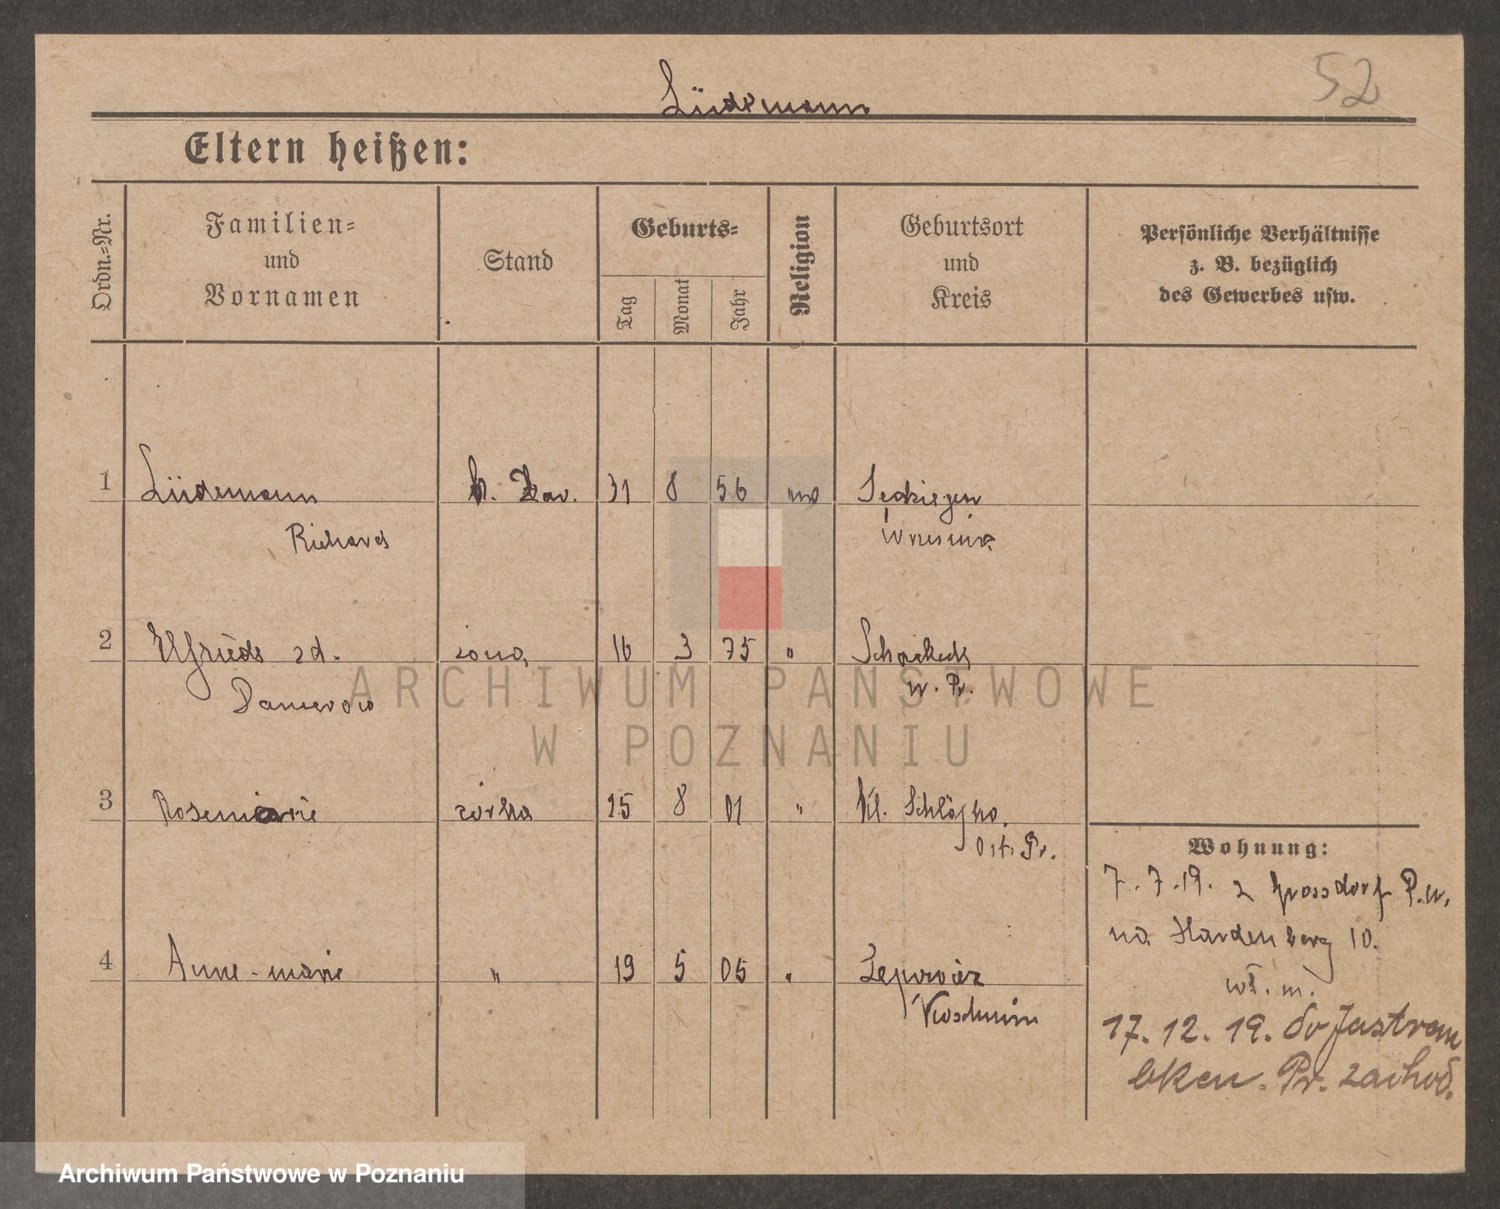 52
Lüdemann
Eltern heißen:
Ordn.-Nr.
Familien-
und
Vornamen
Stand
Geburts-
Tag
Monat
Jahr
Religion
Geburtsort
und
Kreis
Persönliche Verhältnisse
z. B. bezüglich
des Gewerbes usw.
1 Lüdemann 31 8 56
Richard
2 Elfriede zd. żona 16 3 75 "
Damerow w. Pr.
3 Rosemarie córka 25 8 01 "
Kl. Schläfko.
Ost. Pr.
4 Anne-marie " 19 5 05 "
Kroschmin
Wohnung:
7. 7. 19. z Grossdorf P.W.
na Hardenberg 10.
wł. m.
17. 12. 19. do Jastrem
bken. Pr. zachod.
ARCHIWUM PAŃSTWOWE
W POZNANIU
Archiwum Państwowe w Poznaniu